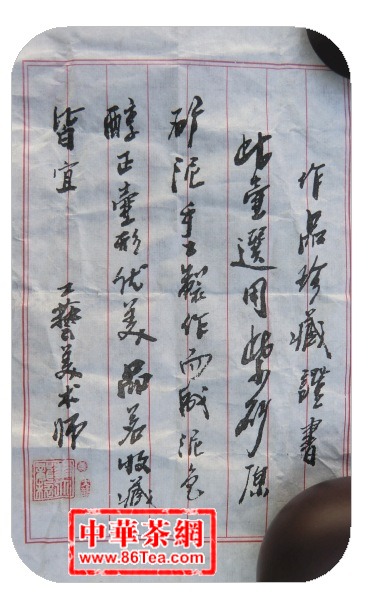 作品珍藏證書
此壺選用紫砂原
矿泥手工製作而成泥色
醇正壷形优美品茗收藏
皆宜
工藝美术师
中華茶網
www.86Tea.com